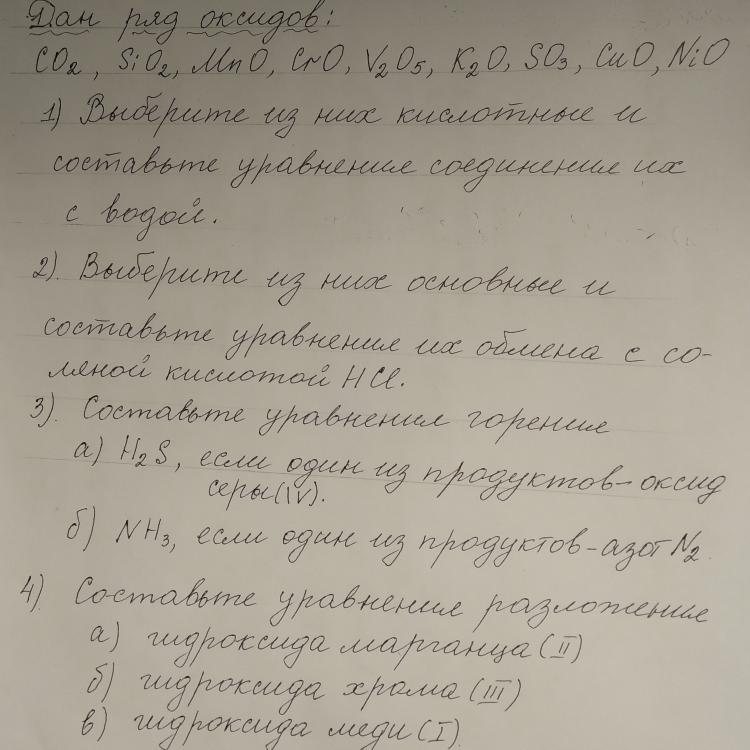 Дан ряд оксидов:
CO₂, SiO₂, MnO, CrO, V₂O₅, K₂O, SO₃, CuO, NiO
1) Выберите из них кислотные и
составьте уравнения соединения их
с водой.
2). Выберите из них основные и
составьте уравнения их обмена с со-
ляной кислотой HCl.
3). Составьте уравнения горения
а) H₂S, если один из продуктов-оксид
серы(IV).
б) NH₃, если один из продуктов-азот N₂
4). Составьте уравнения разложения
а) гидроксида марганца (II)
б) гидроксида хрома (III)
в) гидроксида меди (I)